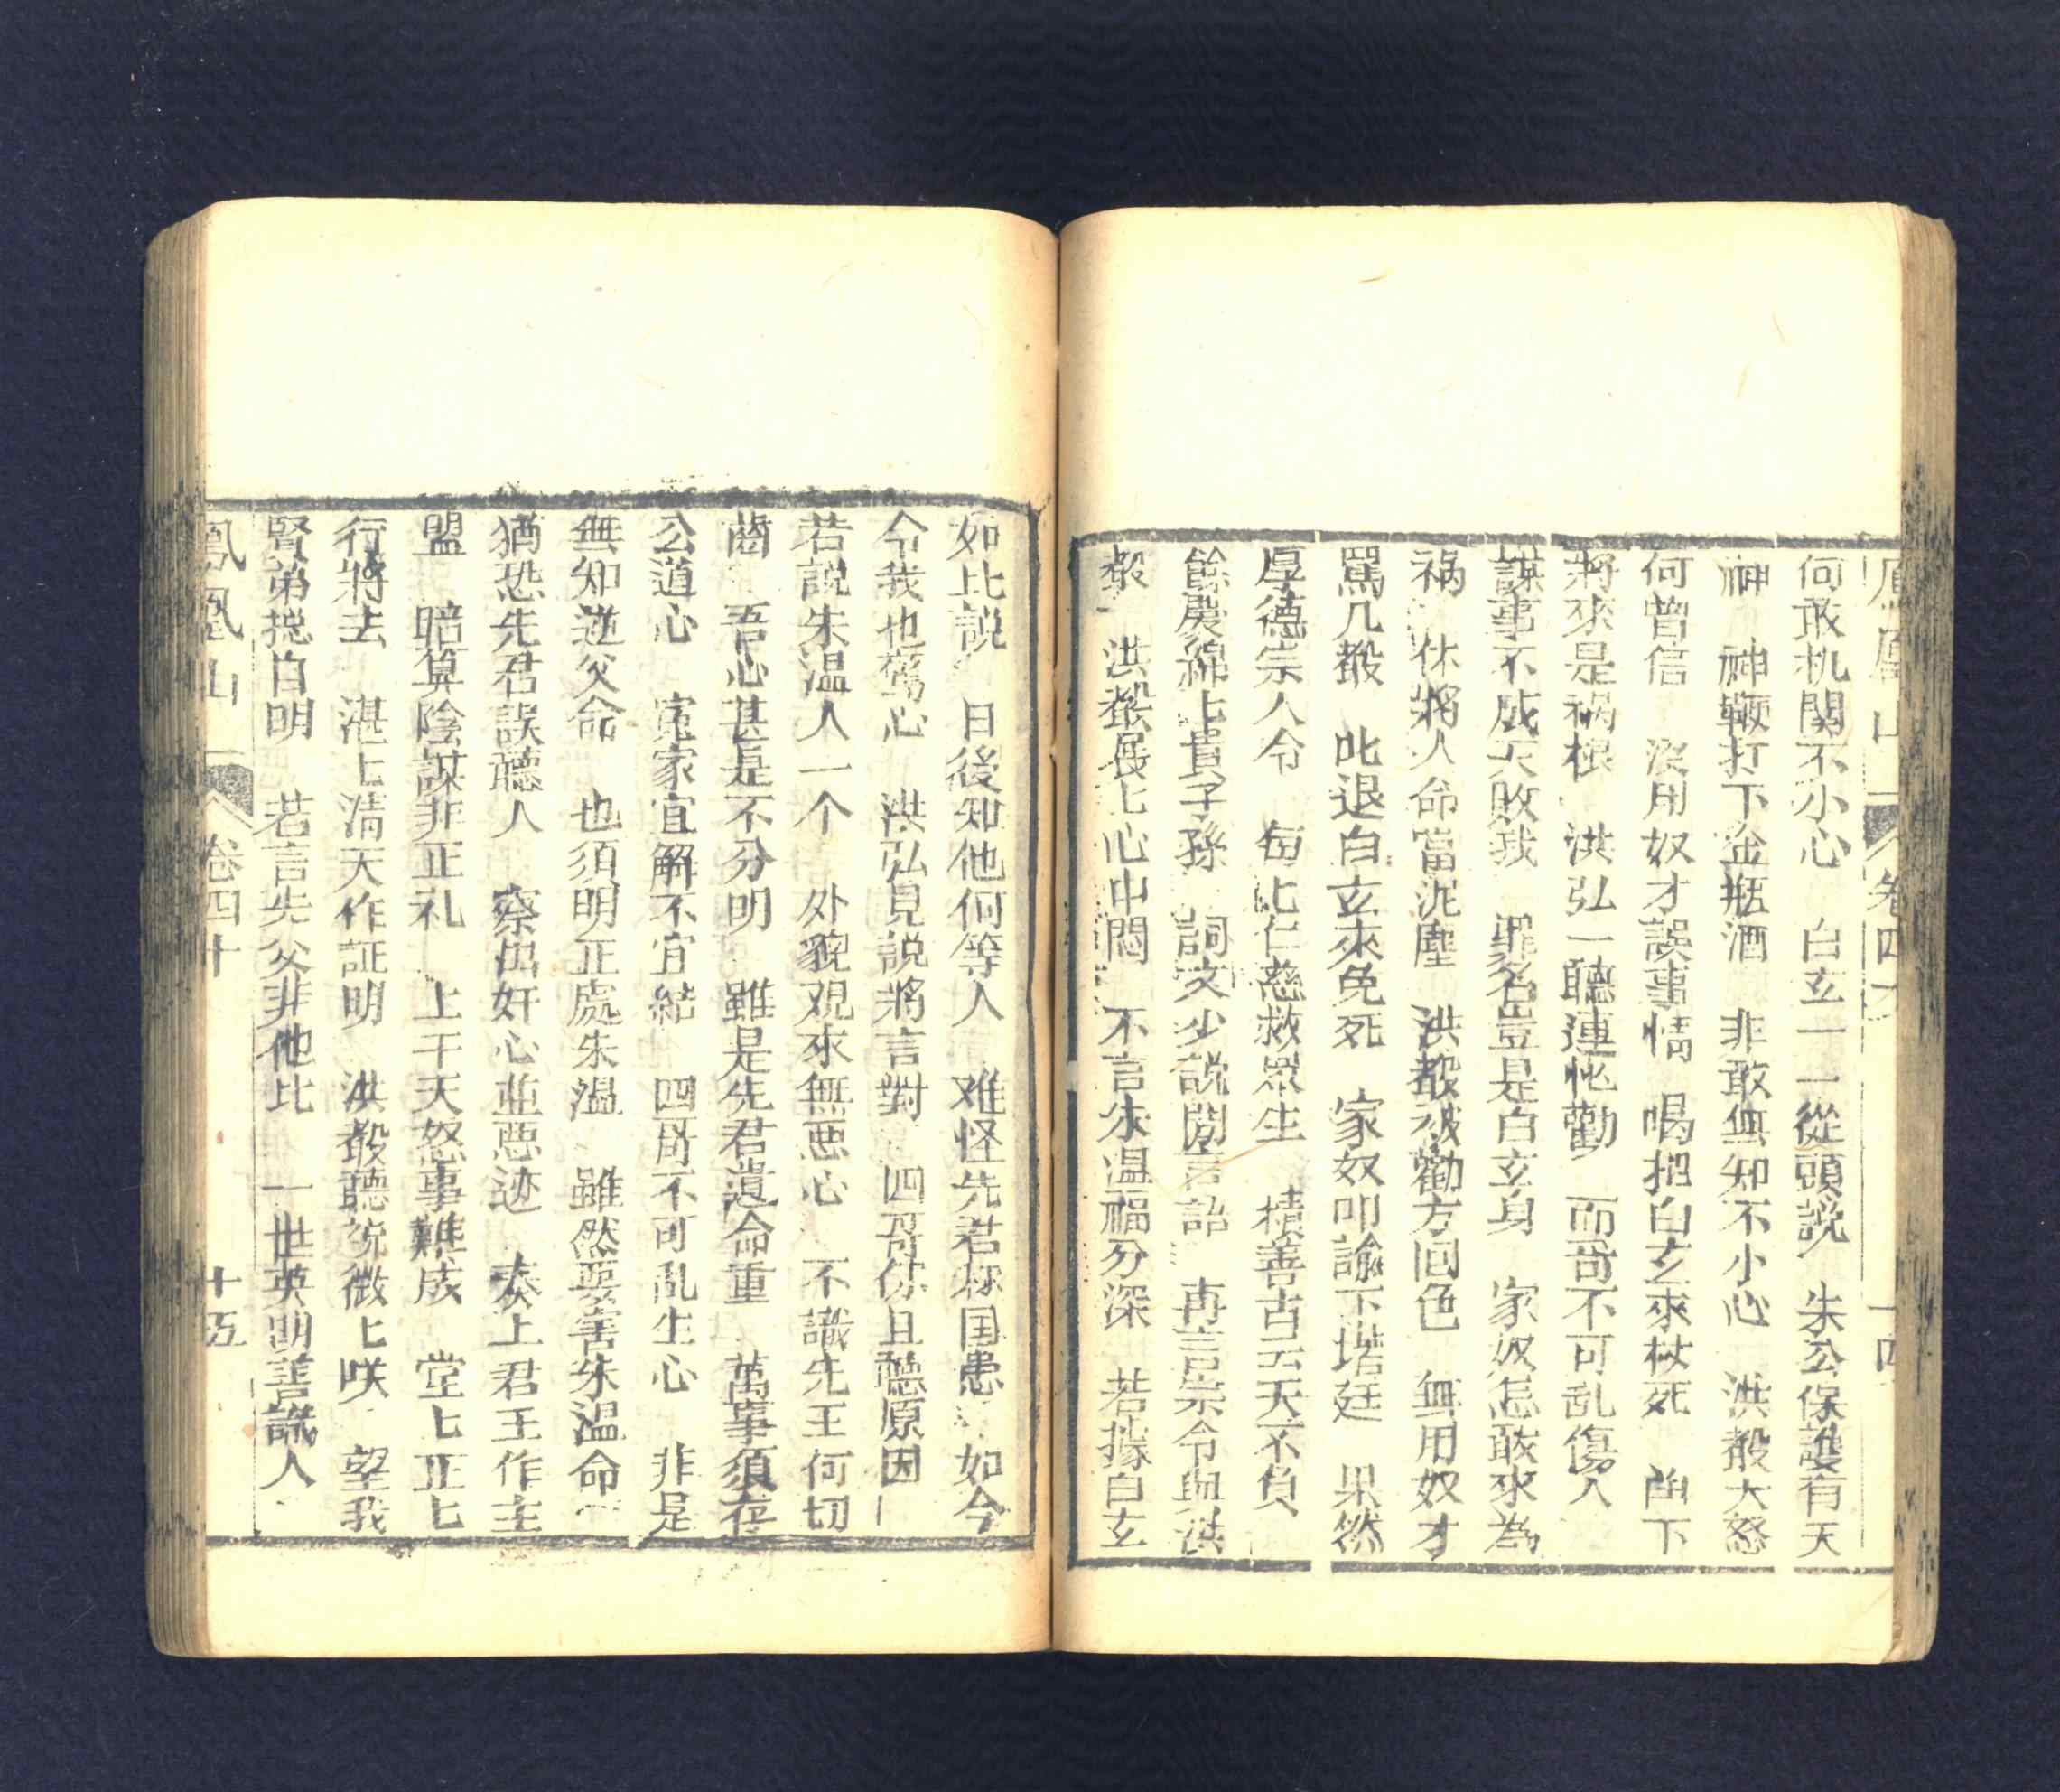 鳳凰山 卷四十 十四
何敢机関不小心 白玄一一從頭説 朱公保護有天
神 神鞭打下金瓶酒 非敢無知不小心 洪彀大怒
何曾信 没用奴才誤事情 喝把白玄來杖死 階下
將來是禍根 洪弘一聽連忙勸 而哥不可乱傷人
謀事不成天敗我 罪名豈是白玄身 家奴怎敢來為
禍 休將人命當泥塵 洪彀被勸方囘色 無用奴才
罵几彀 叱退白玄來免死 家奴叩諭下堦廷 果然
厚德崇人令 每匕仁慈救眾生 積善古云天不負
餘慶綿匕貴子孫 詞文少説閒言語 再言崇令與洪
彀 洪彀長匕心中悶 不言朱温福分深 若據白玄
如比説 日後知他何等人 难怪先君称国患 如今
令我也驚心 洪弘見説將言對 四哥你且聽原因
若説朱温人一个 外貌观來無悪心 不識先王何切
齒 吾心甚是不分明 雖是先君遺命重 萬事須存
公道心 寃家宜解不宜結 四哥不可乱生心 非是
無知逆父命 也須明正處朱温 雖然要害朱温命
猶恐先君誤聽人 察出奸心並悪迹 奏上君王作主
盟 暗算陰謀非正礼 上干天怒事難成 堂匕正匕
行將去 湛上淸天作証明 洪彀聽説微匕咲 望我
賢弟挩自明 若言先父非他比 一世英明善識人
鳳凰山 卷四十 十五